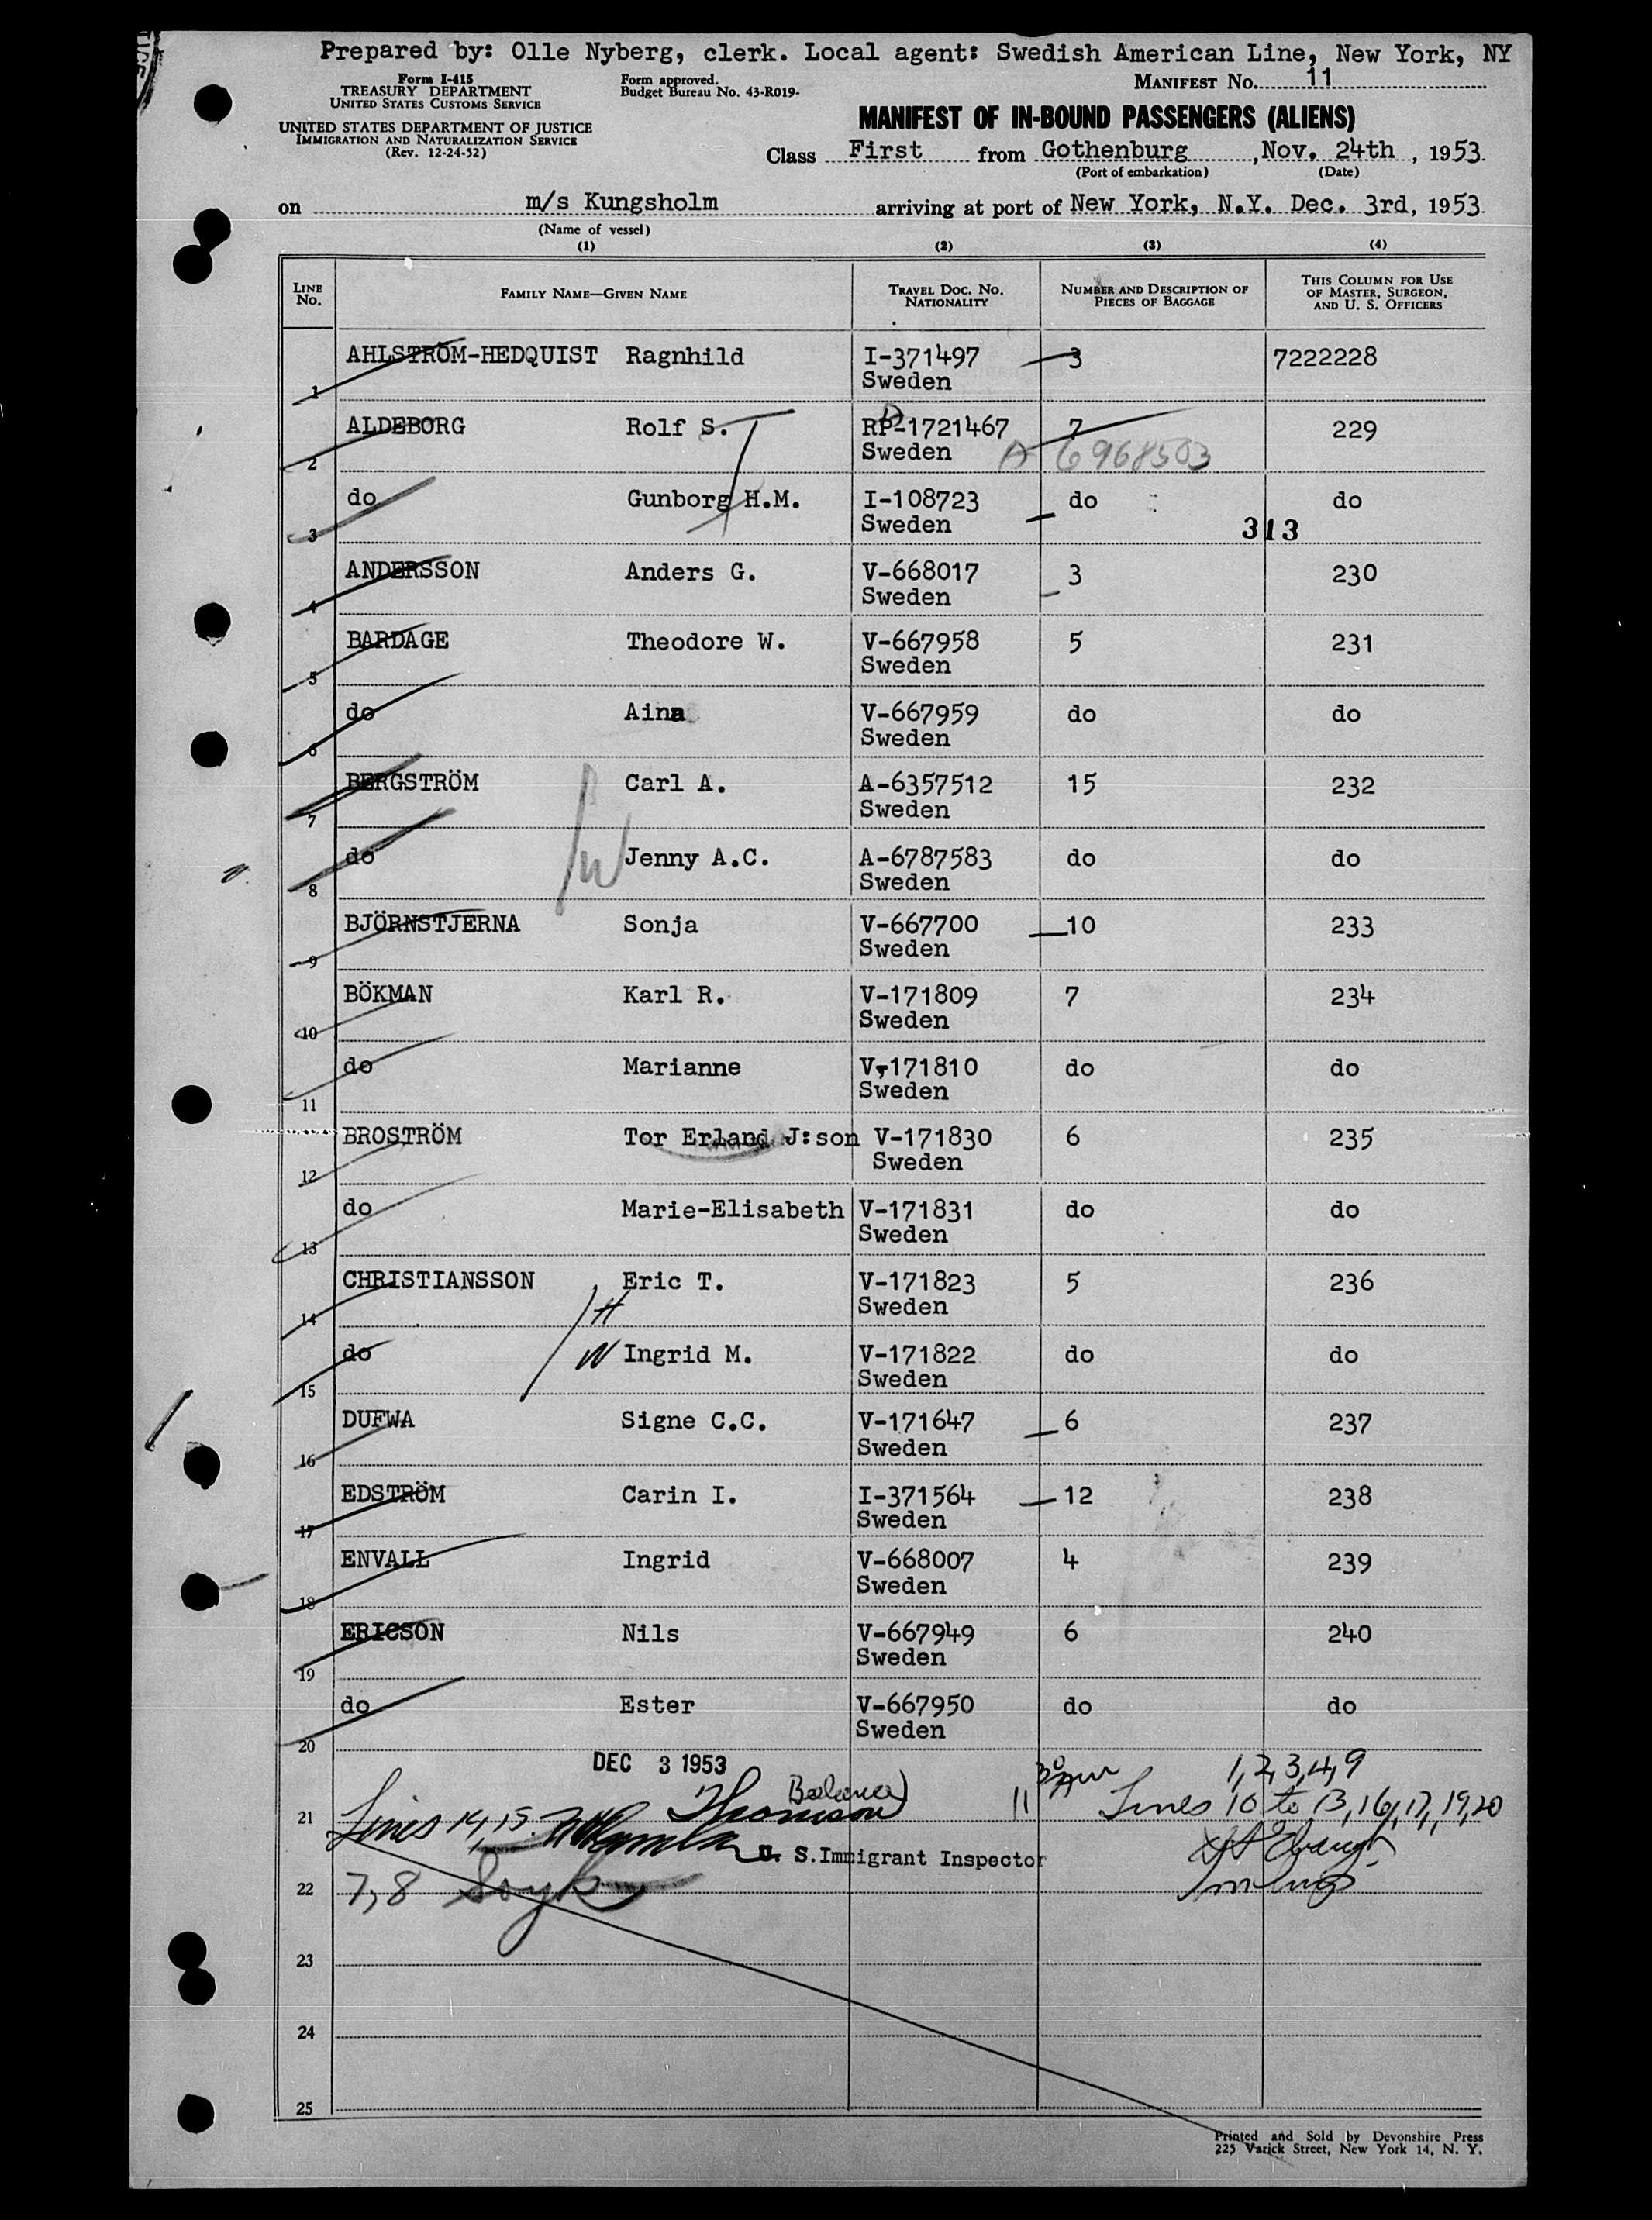 Prepared by: Olle Nyberg, clerk. Local agent: Swedish American Line, New York, NY
Form I-415
TREASURY DEPARTMENT
UNITED STATES CUSTOMS SERVICE
Form approved.
Budget Bureau No. 43-R019-
MANIFEST NO. 11
UNITED STATES DEPARTMENT OF JUSTICE
IMMIGRATION AND NATURALIZATION SERVICE
(Rev. 12-24-52)
MANIFEST OF IN-BOUND PASSENGERS (ALIENS)
Class First from Gothenburg, Nov. 24th, 1953
(Port of embarkation) (Date)
on m/s Kungsholm arriving at port of New York, N.Y. Dec. 3rd, 1953
(Name of vessel)
(1) (2) (3) (4)
LINE NO. FAMILY NAME—GIVEN NAME TRAVEL DOC. NO. NATIONALITY NUMBER AND DESCRIPTION OF PIECES OF BAGGAGE THIS COLUMN FOR USE OF MASTER, SURGEON, AND U. S. OFFICERS
1 AHLSTRÖM-HEDQUIST Ragnhild I-371497 3 7222228
Sweden
2 ALDEBORG Rolf S. RP-1721467 7 229
Sweden A 6968503
3 do Gunborg H.M. I-108723 do do
Sweden 313
4 ANDERSSON Anders G. V-668017 3 230
Sweden
5 BARDAGE Theodore W. V-667958 5 231
Sweden
6 do Aina V-667959 do do
Sweden
7 BERGSTRÖM Carl A. A-6357512 15 232
Sweden
8 do W Jenny A.C. A-6787583 do do
Sweden
9 BJÖRNSTJERNA Sonja V-667700 10 233
Sweden
10 BÖKMAN Karl R. V-171809 7 234
Sweden
11 do Marianne V-171810 do do
Sweden
12 BROSTRÖM Tor Erland J:son V-171830 6 235
Sweden
13 do Marie-Elisabeth V-171831 do do
Sweden
14 CHRISTIANSSON H Eric T. V-171823 5 236
Sweden
15 do W Ingrid M. V-171822 do do
Sweden
16 DUFWA Signe C.C. V-171647 6 237
Sweden
17 EDSTRÖM Carin I. I-371564 12 238
Sweden
18 ENVALL Ingrid V-668007 4 239
Sweden
19 ERICSON Nils V-667949 6 240
Sweden
20 do Ester V-667950 do do
Sweden
DEC 3 1953
Balance 11 30 Am 1,2,3,4,9
21 Lines 14,15 Thomson Lines 10 to 13,16,17,19,20
U. S. Immigrant Inspector
22 7,8
23
24
25
Printed and Sold by Devonshire Press
225 Varick Street, New York 14, N. Y.